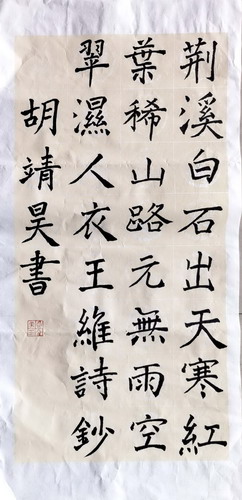 荆溪白石出天寒紅
葉稀山路元無雨空
翠濕人衣王維詩鈔
胡靖昊書